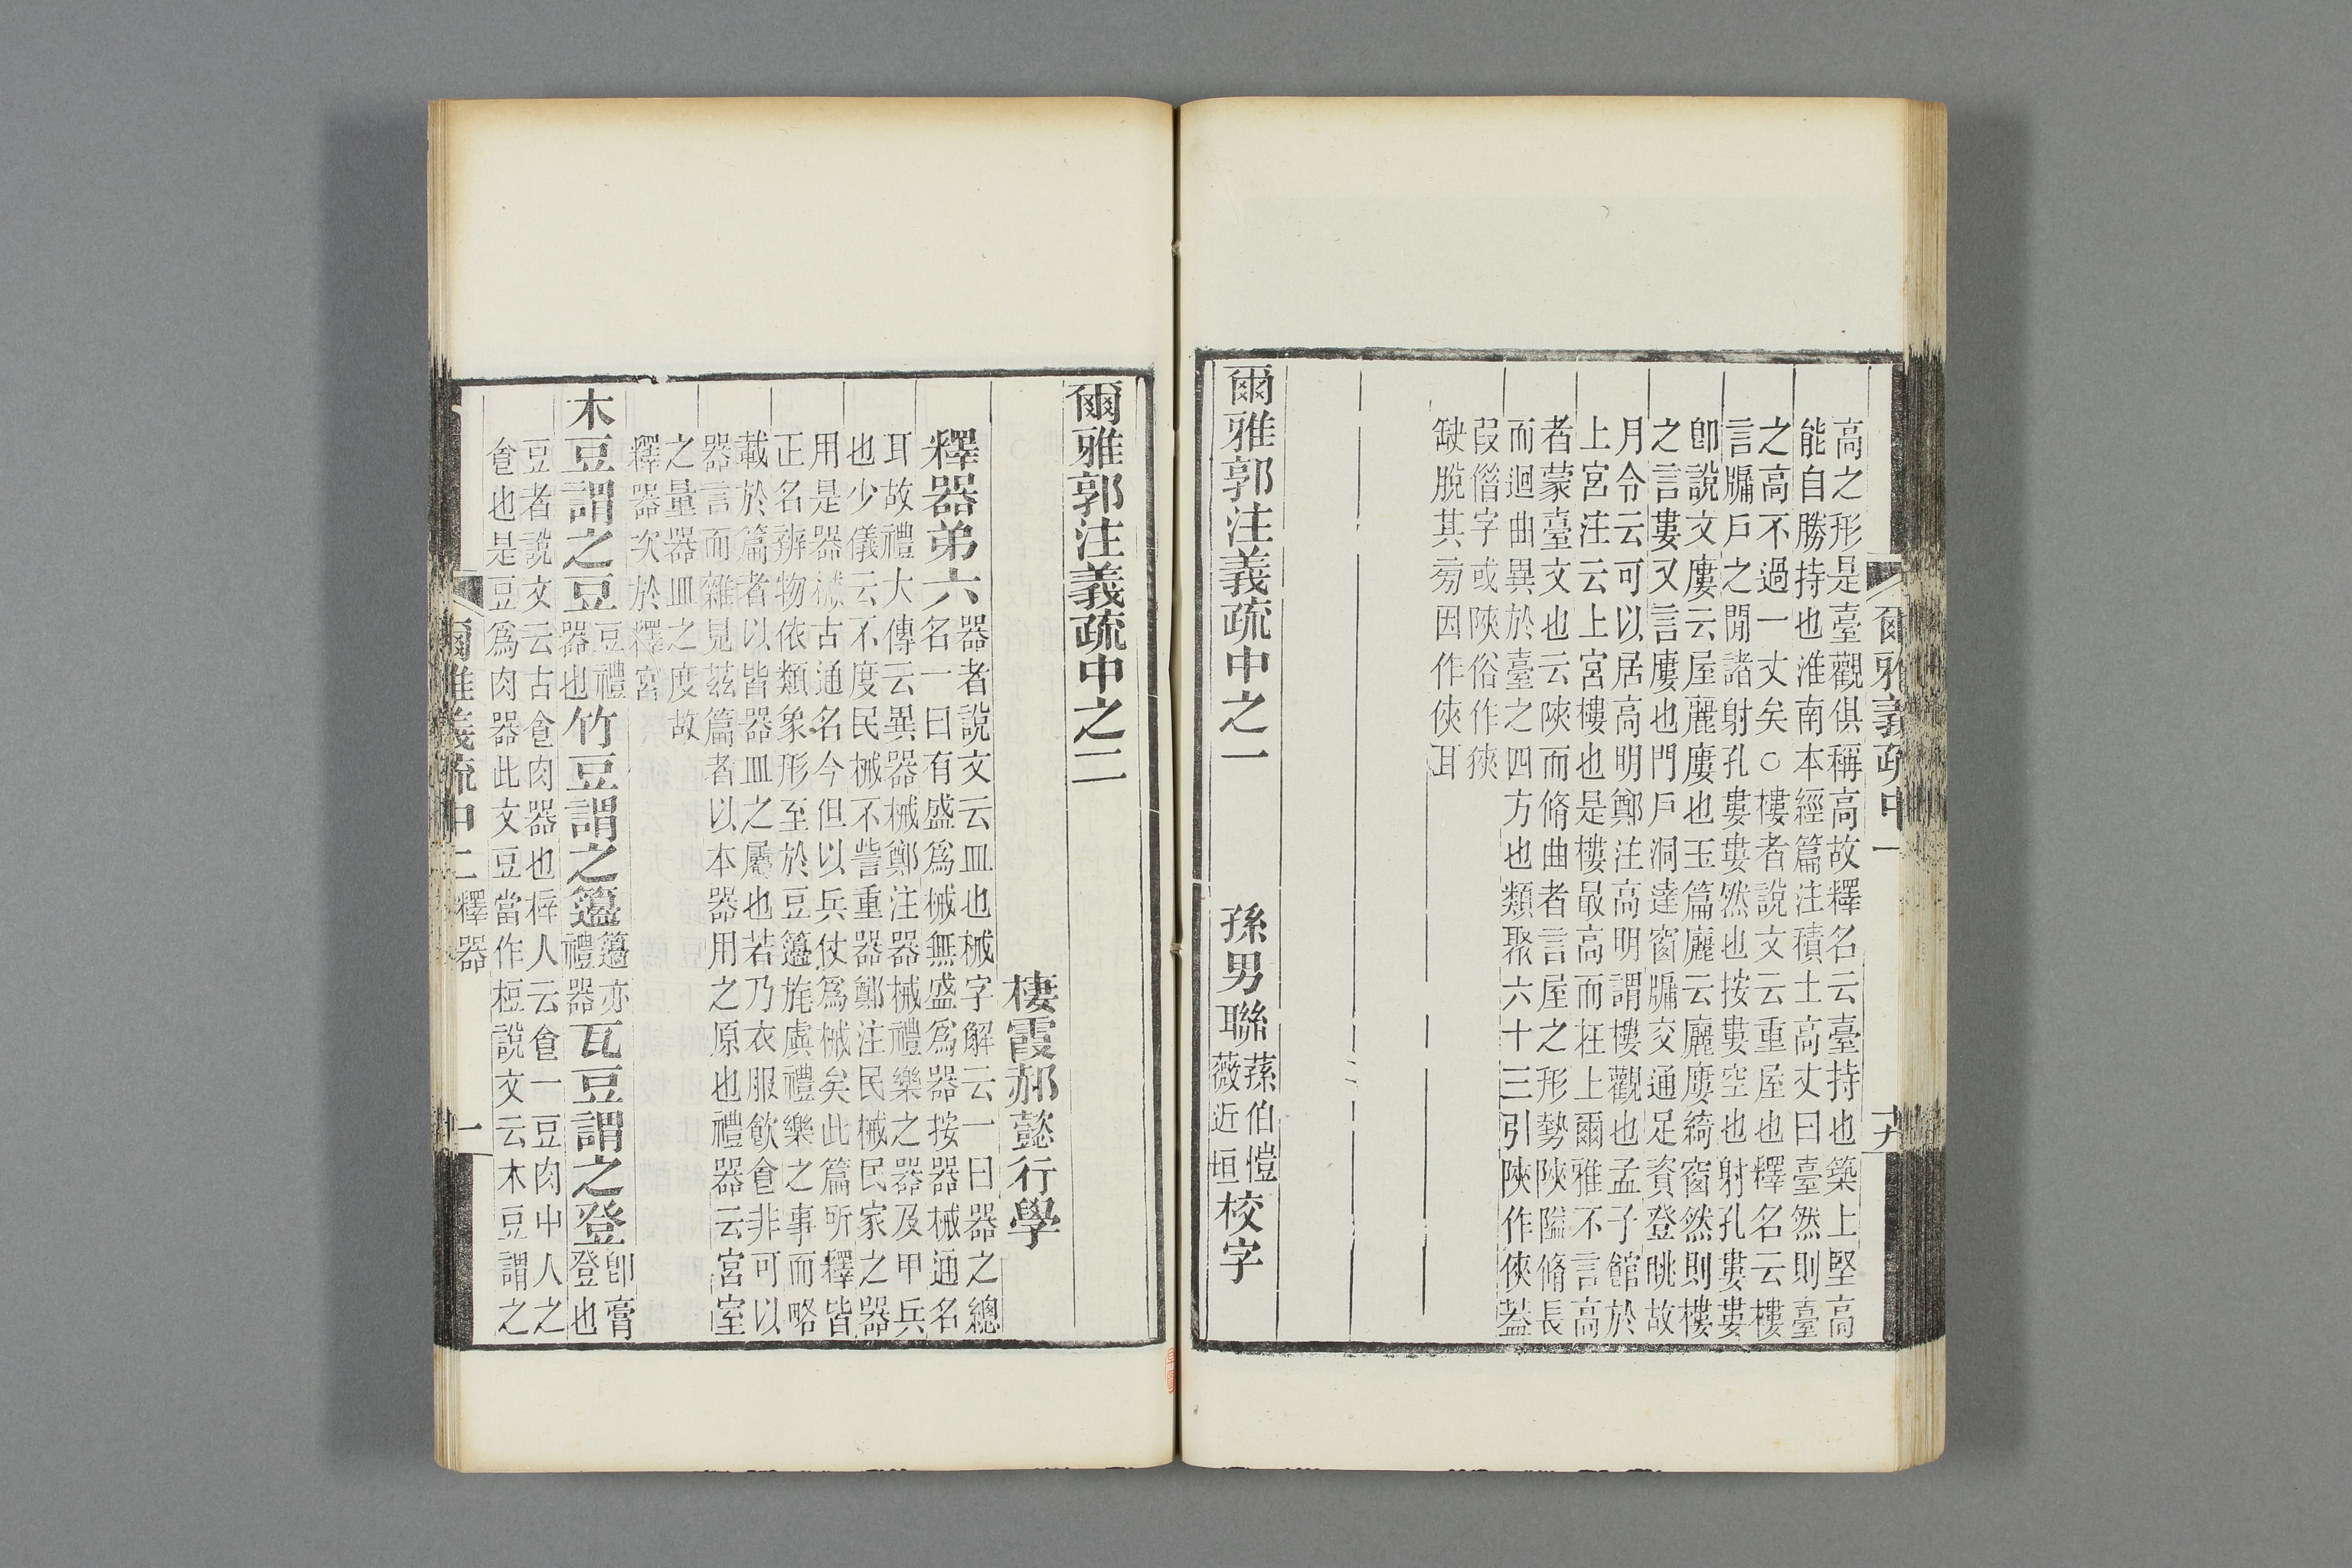 爾雅義疏中一
十九
高之形是臺觀俱稱高故釋名云臺持也築土堅高
能自勝持也淮南本經篇注積土高丈曰臺然則臺
之高不過一丈矣○樓者說文云重屋也釋名云樓
言牖戶之閒諸射孔婁婁然也按婁空也射孔婁婁
卽說文廔云屋麗廔也玉篇廲云廲廔綺窗然則樓
之言婁又言廔也門戶洞達窗牖交通足資登眺故
月令云可以居高明鄭注高明謂樓觀也孟子館於
上宮注云上宮樓也是樓最高而在上爾雅不言高
者蒙臺文也云陝而脩曲者言屋之形勢陝隘脩長
而迴曲異於臺之四方也類聚六十三引陝作俠葢
叚偺字或陝俗作狹
缺脫其㫄因作俠耳
爾雅郭注義疏中之一
孫男聯
蓀伯愷
薇近垣
校字
爾雅郭注義疏中之二
棲霞郝懿行學
釋器弟六
器者說文云皿也械字解云一曰器之總
名一曰有盛爲械無盛爲器按器械通名
耳故禮大傳云異器械鄭注器械禮樂之器及甲兵
也少儀云不度民械不訾重器鄭注民械民家之器
用是器械古通名今但以兵仗爲械矣此篇所釋皆
正名辨物依類象形至於豆籩旄虡禮樂之事而略
載於篇者以皆器皿之屬也若乃衣服飮食非可以
器言而雜見茲篇者以本器用之原也禮器云宮室
之量器皿之度故
釋器次於釋宮
木豆謂之豆
豆禮
器也
竹豆謂之籩
籩亦
禮器
瓦豆謂之登
卽膏
登也
豆者說文云古食肉器也梓人云食一豆肉中人之
食也是豆爲肉器此文豆當作梪說文云木豆謂之
爾雅義疏中二
釋器
一